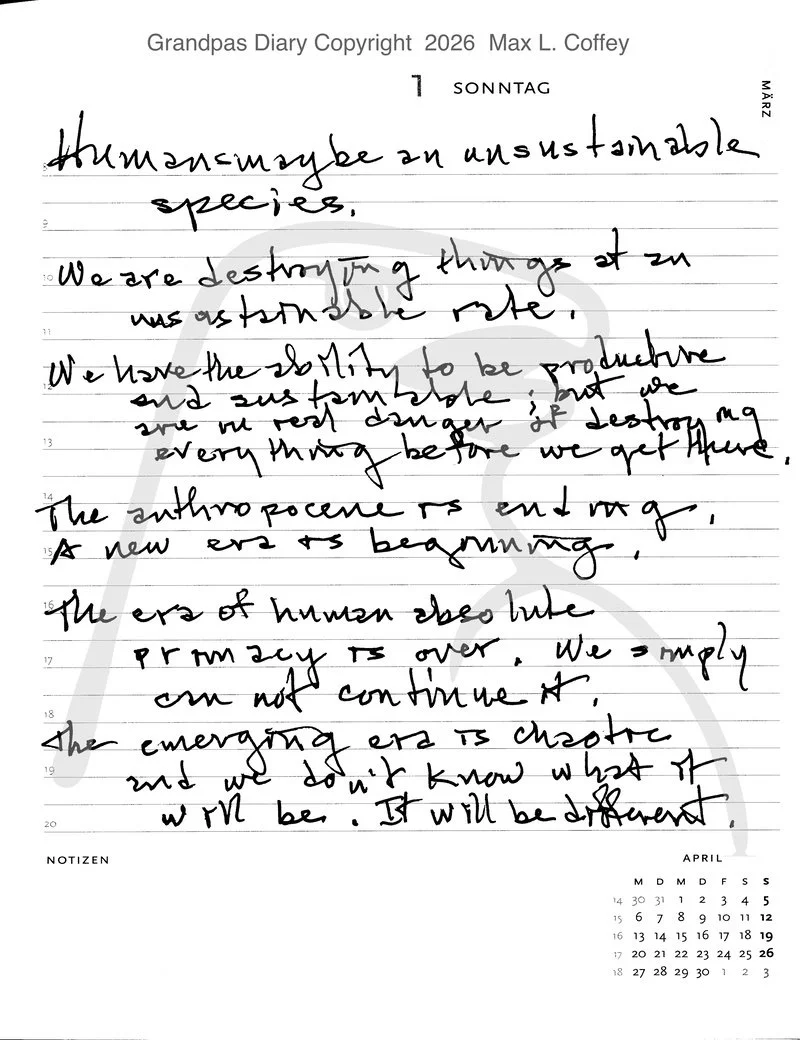 Grandpas Diary Copyright 2026 Max L. Coffey
1 SONNTAG
MÄRZ
Humans may be an unsustainable
species.
We are destroying things at an
unsustainable rate.
We have the ability to be productive
and sustainable; but we
are in real danger of destroying
everything before we get there.
The anthropocene is ending.
A new era is beginning.
The era of human absolute
primacy is over. We simply
can not continue it.
The emerging era is chaotic
and we don't know what it
will be. It will be different.
8
9
10
11
12
13
14
15
16
17
18
19
20
NOTIZEN
APRIL
M D M D F S S
14 30 31 1 2 3 4 5
15 6 7 8 9 10 11 12
16 13 14 15 16 17 18 19
17 20 21 22 23 24 25 26
18 27 28 29 30 1 2 3